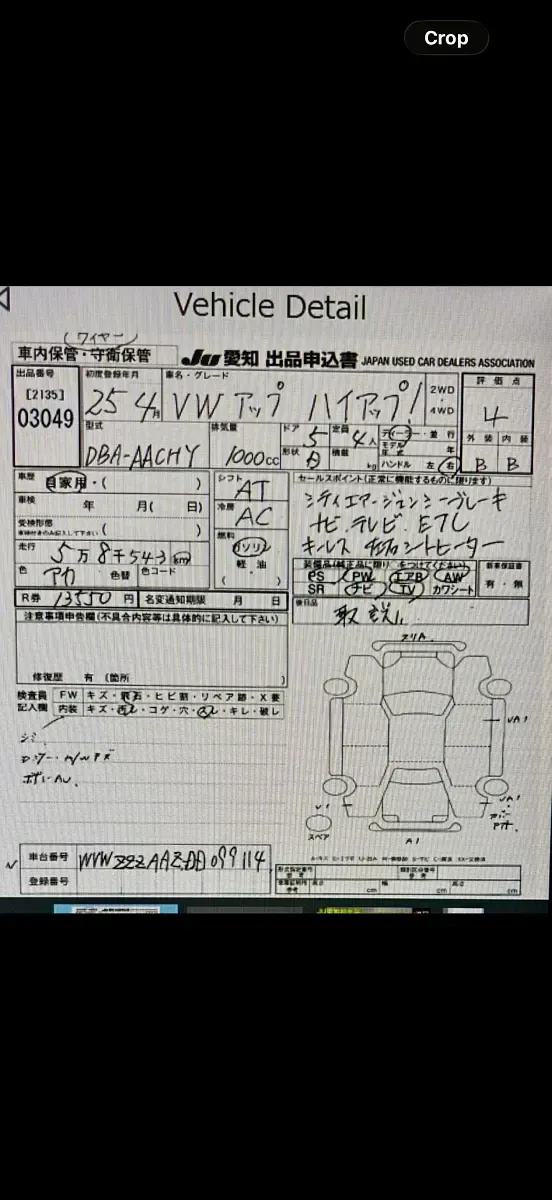 Crop
Vehicle Detail
(ワイヤー)
車内保管・守衛保管
JU 愛知 出品申込書 JAPAN USED CAR DEALERS ASSOCIATION
出品番号
[2135]
03049
初度登録年月
25 4月
車名・グレード
VW アップ ハイアップ!
2WD
・
4WD
評価点
4
型式
DBA-AACHY
排気量
1000cc
ドア
5
形状
定員
4人
積載
kg
ディーラー・並行
モデル年式 年
ハンドル 左 右
外装 内装
B B
車歴
自家用・( )
車検
年 月( 日)
受検形態
( )
走行
5万8千543km
色
アカ
色替
色コード
シフト
AT
冷房
AC
燃料
ガソリン
軽・油
( )
セールスポイント(正常に機能するものに限ります)
シティエマージェンシーブレーキ
ナビ.テレビ.ETC
シートヒーター
装備品(純正品に限り○をつけてください)
PS PW エアB AW
SR ナビ TV カワシート
新車保証書
有・無
R券 13550円
名変通知期限 月 日
後日品
取説
注意事項申告欄(不具合内容等は具体的に記入して下さい)
修復歴 有 (箇所 )
検査員
記入欄
FW キズ・飛石・ヒビ割・リペア跡・X要
内装 キズ・汚レ・コゲ・穴・凹・キレ・破レ
スペア
A1
車台番号 WVWZZZAAZDD099114
登録番号
cm cm cm